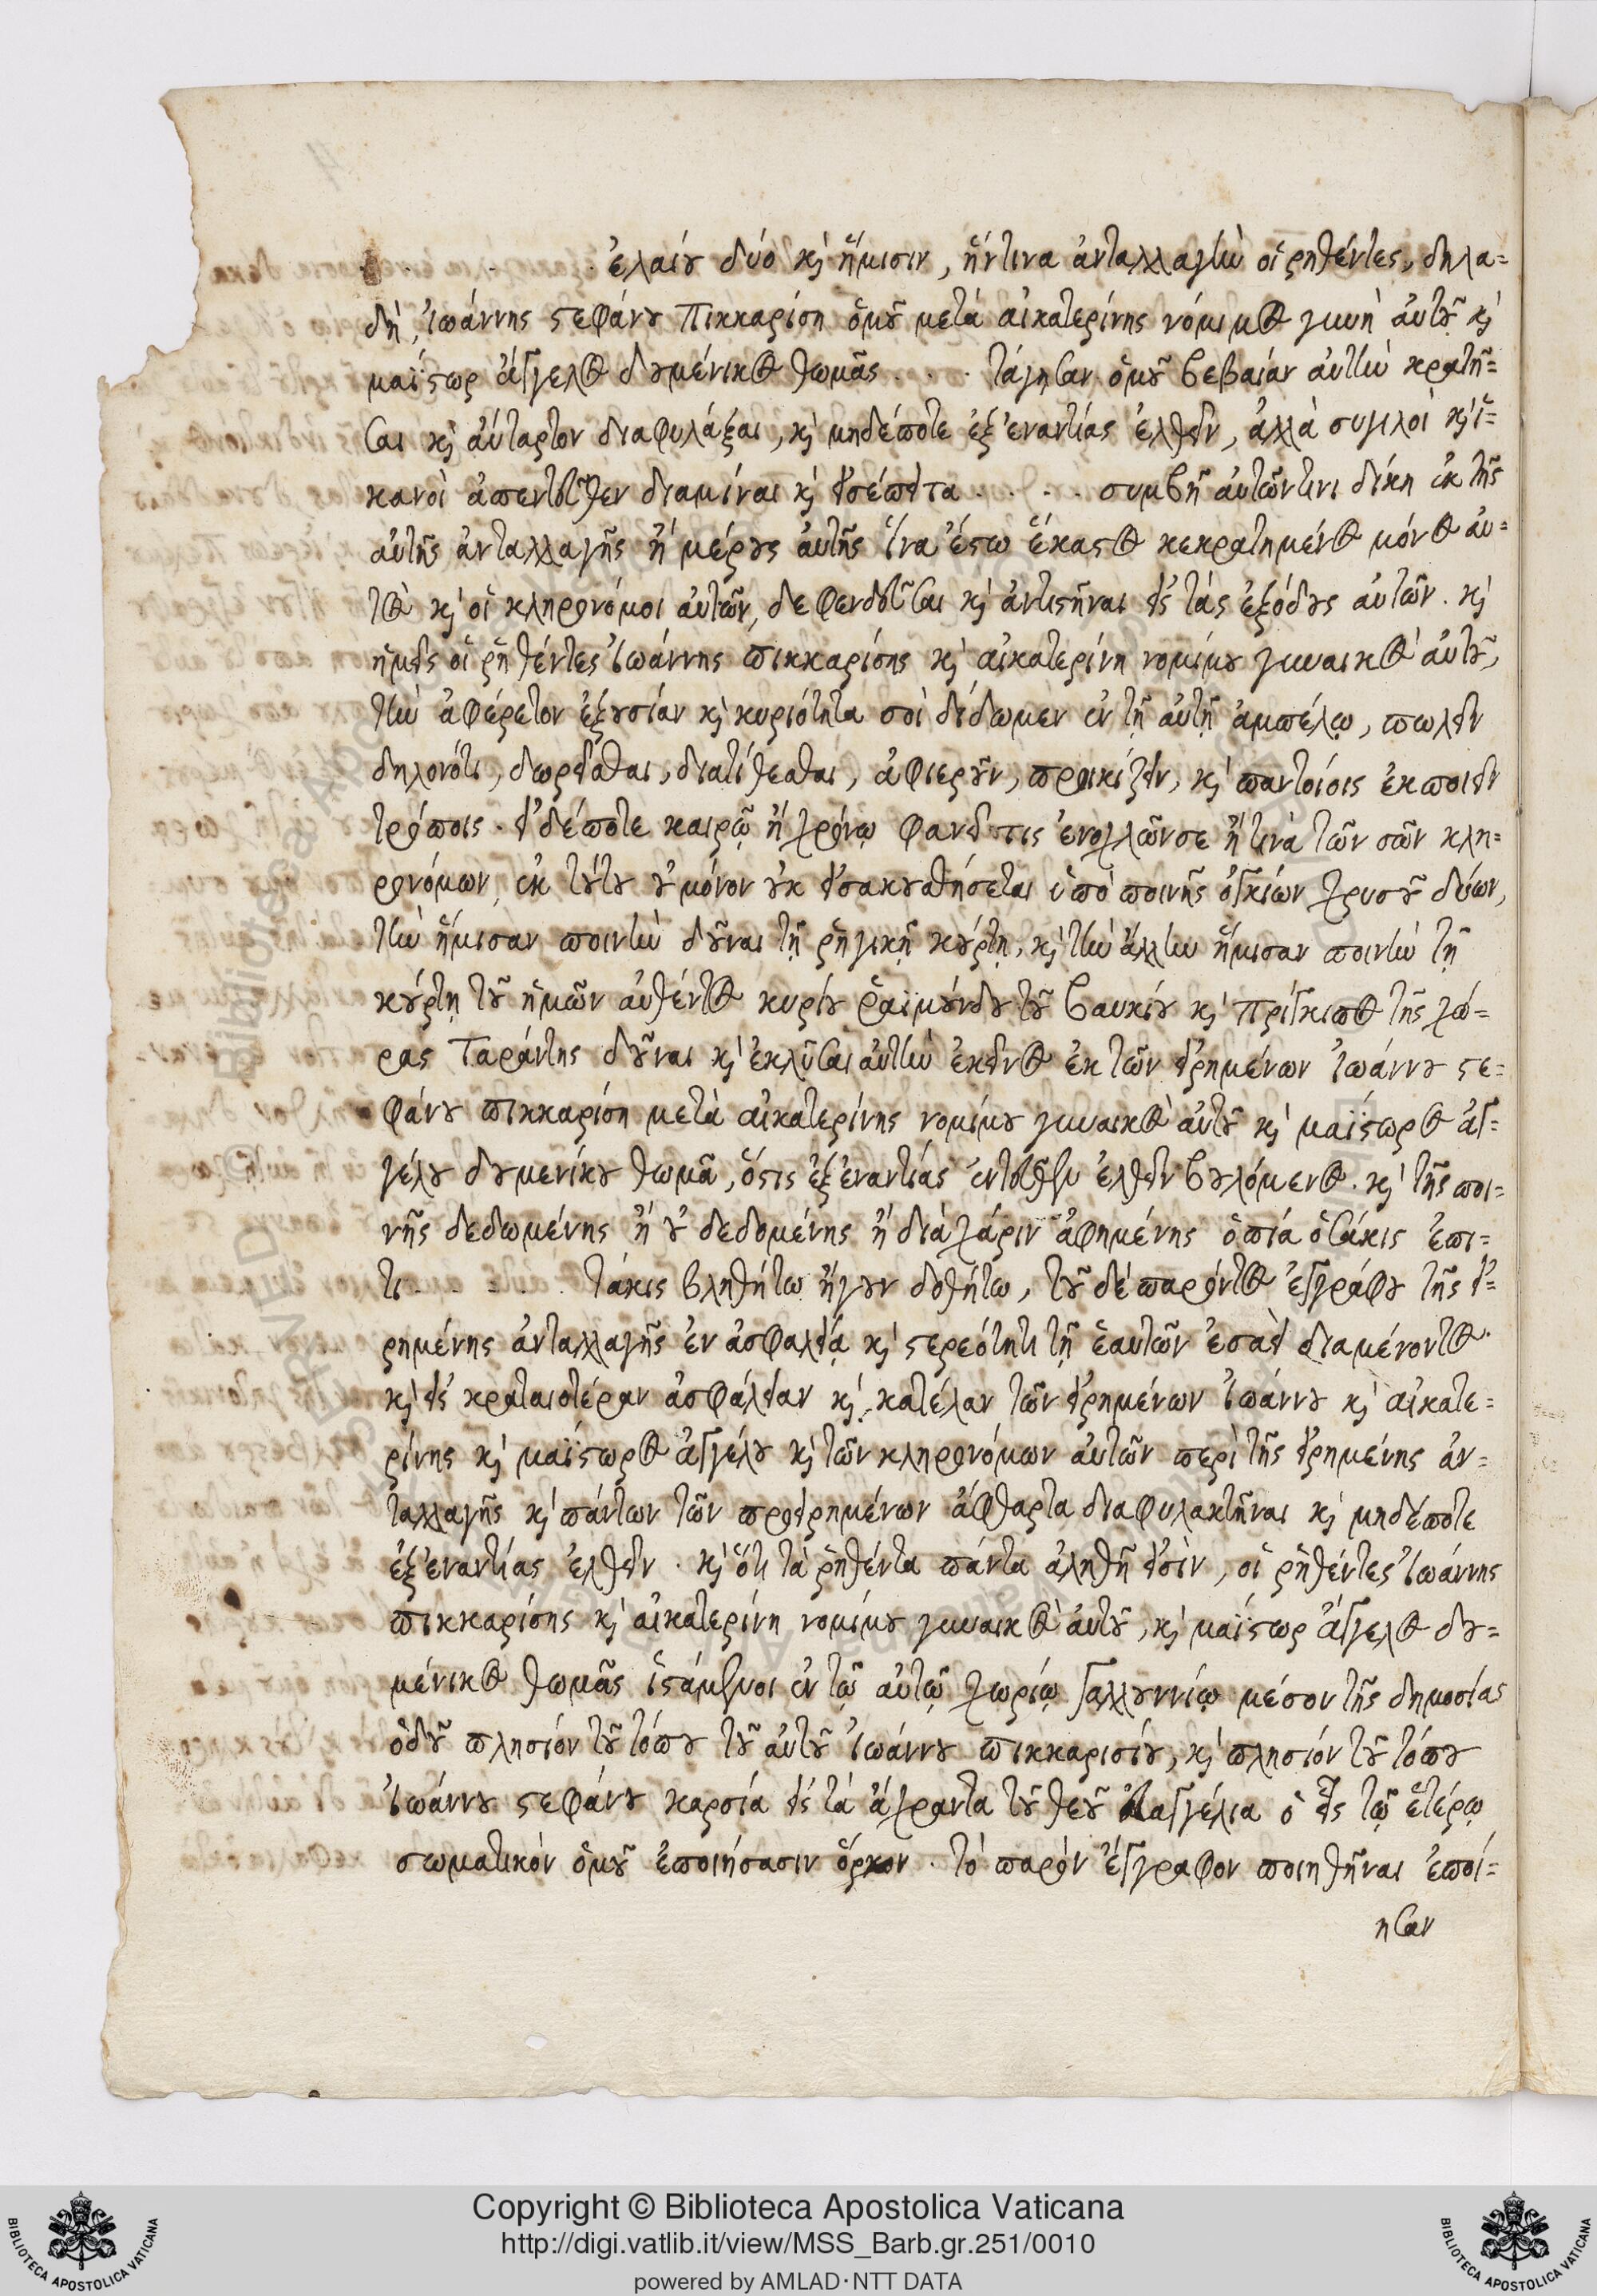 . . . ἐλαίου δύο καὶ ἥμισιν, ἥντινα ἀνταλλαγὴν οἱ ῥηθέντες, δηλα=
δὴ, Ἰωάννης στεφάνου Πικκαρίση ὁμοῦ μετὰ αἰκατερίνης νόμιμος γυνὴ αὐτοῦ καὶ
μαΐστωρ ἄγγελος δουμένικος θωμᾶς . . . τάγησαν ὁμοῦ βεβαίαν αὐτὴν κρατῆ=
σαι καὶ ἄφταρτον διαφυλάξαι, καὶ μηδέποτε ἐξ ἐναντίας ἐλθεῖν, ἀλλὰ συγιλοὶ καὶ ἱ=
κανοὶ ἀπεντεῦθεν διαμίναι καὶ εἰσέπειτα . . . . συμβῇ αὐτῶν τινι δίκη ἐκ τῆς
αὐτῆς ἀνταλλαγῆς ἢ μέρους αὐτῆς ἵνα ἔστω ἕκαστος κεκρατημένος μόνος αὐ=
τὸς καὶ οἱ κληρονόμοι αὐτῶν, δεφενδεῦσαι καὶ ἀντιστῆναι εἰς τὰς ἐξόδους αὐτῶν. καὶ
ἡμεῖς οἱ ῥηθέντες Ἰωάννης πικκαρίσης καὶ αἰκατερίνη νομίμου γυναικὸς αὐτοῦ,
τὴν ἀφέρετον ἐξουσίαν καὶ κυριότητα σοὶ δίδωμεν ἐν τῇ αὐτῇ ἀμπέλῳ, πωλεῖν
δηλονότι, δωρεῖσθαι, διατίθεσθαι, ἀφιεροῦν, προικίζειν, καὶ παντοίοις ἐκποιεῖν
τρόποις. εἰ δέποτε καιρῷ ἢ χρόνῳ φανεῖ τις ἐνοχλῶν σε ἢ τινὰ τῶν σῶν κλη=
ρονόμων, ἐκ τούτου οὐ μόνον οὐκ εἰσακουσθήσεται ὑπὸ ποινῆς ὀγκίων χρυσοῦ δύων,
τὴν ἥμισαν ποινὴν δοῦναι τῇ ῥηγικῇ κούρτῃ, καὶ τὴν ἄλλην ἥμισαν ποινὴν τῇ
κούρτῃ τοῦ ἡμῶν αὐθέντος κυρίου ῥαϊμούνδου τοῦ βαυκίου καὶ πρίγκιπος τῆς χώ=
ρας ταράντης δοῦναι καὶ ἐκλῦσαι αὐτὴν ἐκεῖνος ἐκ τῶν εἰρημένων Ἰωάννου στε=
φάνου πικκαρίση μετὰ αἰκατερίνης νομίμου γυναικὸς αὐτοῦ καὶ μαΐστωρος ἀγ=
γέλου δουμενίκου θωμᾶ, ὅστις ἐξ ἐναντίας ἐντεῦθεν ἐλθεῖν βουλόμενος. καὶ τῆς ποι=
νῆς δεδωμένης ἢ οὐ δεδομένης ἢ διὰ χάριν ἀφημένης ὁπία ὁτάκις ἐπι=
τι . . . . . τάκις βληθήτω ἤγουν δοθήτω, τοῦ δὲ παρόντος ἐγγράφου τῆς εἰ=
ρημένης ἀνταλλαγῆς ἐν ἀσφαλείᾳ καὶ στερεότητι τῇ ἑαυτῶν ἐσαεὶ διαμένοντος.
καὶ εἰς κραταιοτέραν ἀσφάλειαν καὶ κατέλαν τῶν εἰρημένων Ἰωάννου καὶ αἰκατε=
ρίνης καὶ μαΐστωρος ἀγγέλου καὶ τῶν κληρονόμων αὐτῶν περὶ τῆς εἰρημένης ἀν=
ταλλαγῆς καὶ πάντων τῶν προειρημένων ἄφθαρτα διαφυλακτῆναι καὶ μηδέποτε
ἐξ ἐναντίας ἐλθεῖν. καὶ ὅτι τὰ ῥηθέντα πάντα ἀληθῆ εἰσὶν, οἱ ῥηθέντες Ἰωάννης
πικκαρίσης καὶ αἰκατερίνη νομίμου γυναικὸς αὐτοῦ, καὶ μαΐστωρ ἄγγελος δου=
μένικος θωμᾶς ἱστάμενοι ἐν τῷ αὐτῷ χωρίῳ γαλλουννίῳ μέσον τῆς δημοσίας
ὁδοῦ πλησιόν τοῦ τόπου τοῦ αὐτοῦ Ἰωάννου πικκαρισίου, καὶ πλησιόν τοῦ τόπου
Ἰωάννου στεφάνου καρσία εἰς τὰ ἄχραντα τοῦ θεοῦ εὐαγγέλια ὁ εἷς τῷ ἑτέρῳ
σωματικὸν ὁμοῦ ἐποιήσασιν ὅρκον. τὸ παρὸν ἔγγραφον ποιηθῆναι ἐποί=
ησαν
Copyright © Biblioteca Apostolica Vaticana
http://digi.vatlib.it/view/MSS_Barb.gr.251/0010
powered by AMLAD·NTT DATA
BIBLIOTECA APOSTOLICA VATICANA
BIBLIOTECA APOSTOLICA VATICANA